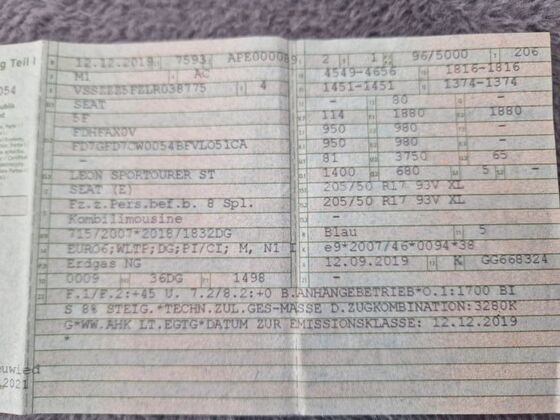 g Teil I
054
12.12.2019 7593 APE000089 2 1 96/5000 206
M1 AC 4549-4656 1816-1816
4 1451-1451 1374-1374
SEAT - 80 -
5F 114 1880 1880
FDHFAX0V 950 980 -
FD7GFD7CW0054BFVLO51CA 950 980 -
- 81 3750 65
LEON SPORTOURER ST 1400 680 5 -
SEAT (E) 205/50 R17 93V XL
Fz.z.Pers.bef.b. 8 Spl. 205/50 R17 93V XL
Kombilimousine -
715/2007*2018/1832DG Blau 5
EURO6;WLTP;DG;PI/CI; M, N1 I e9*2007/46*0094*38
Erdgas NG 12.09.2019 K GG668324
0009 36DG 1498 -
F.1/F.2:+45 U. 7.2/8.2:+0 B.ANHÄNGEBETRIEB*O.1:1700 BI
S 8% STEIG.*TECHN.ZUL.GES-MASSE D.ZUGKOMBINATION:3280K
G*WW.AHK LT.EGTG*DATUM ZUR EMISSIONSKLASSE: 12.12.2019
*
uwied
.2021